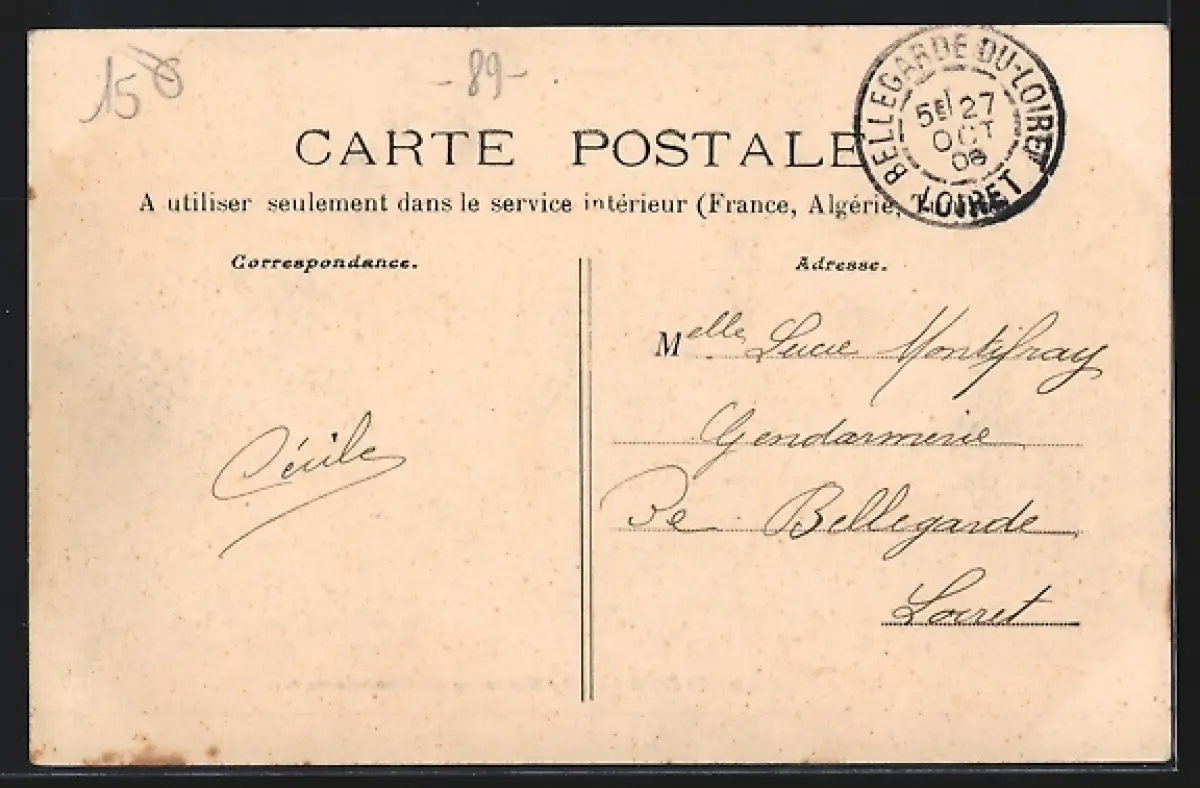 15
- 89 -
CARTE POSTALE
A utiliser seulement dans le service intérieur (France, Algérie,
BELLEGARDE-DU-LOIRET
5E 27
OCT
06
LOIRET
Correspondance.
Adresse.
Melle Lucie Montifray
Gendarmerie
De Bellegarde
Loiret
Cécile